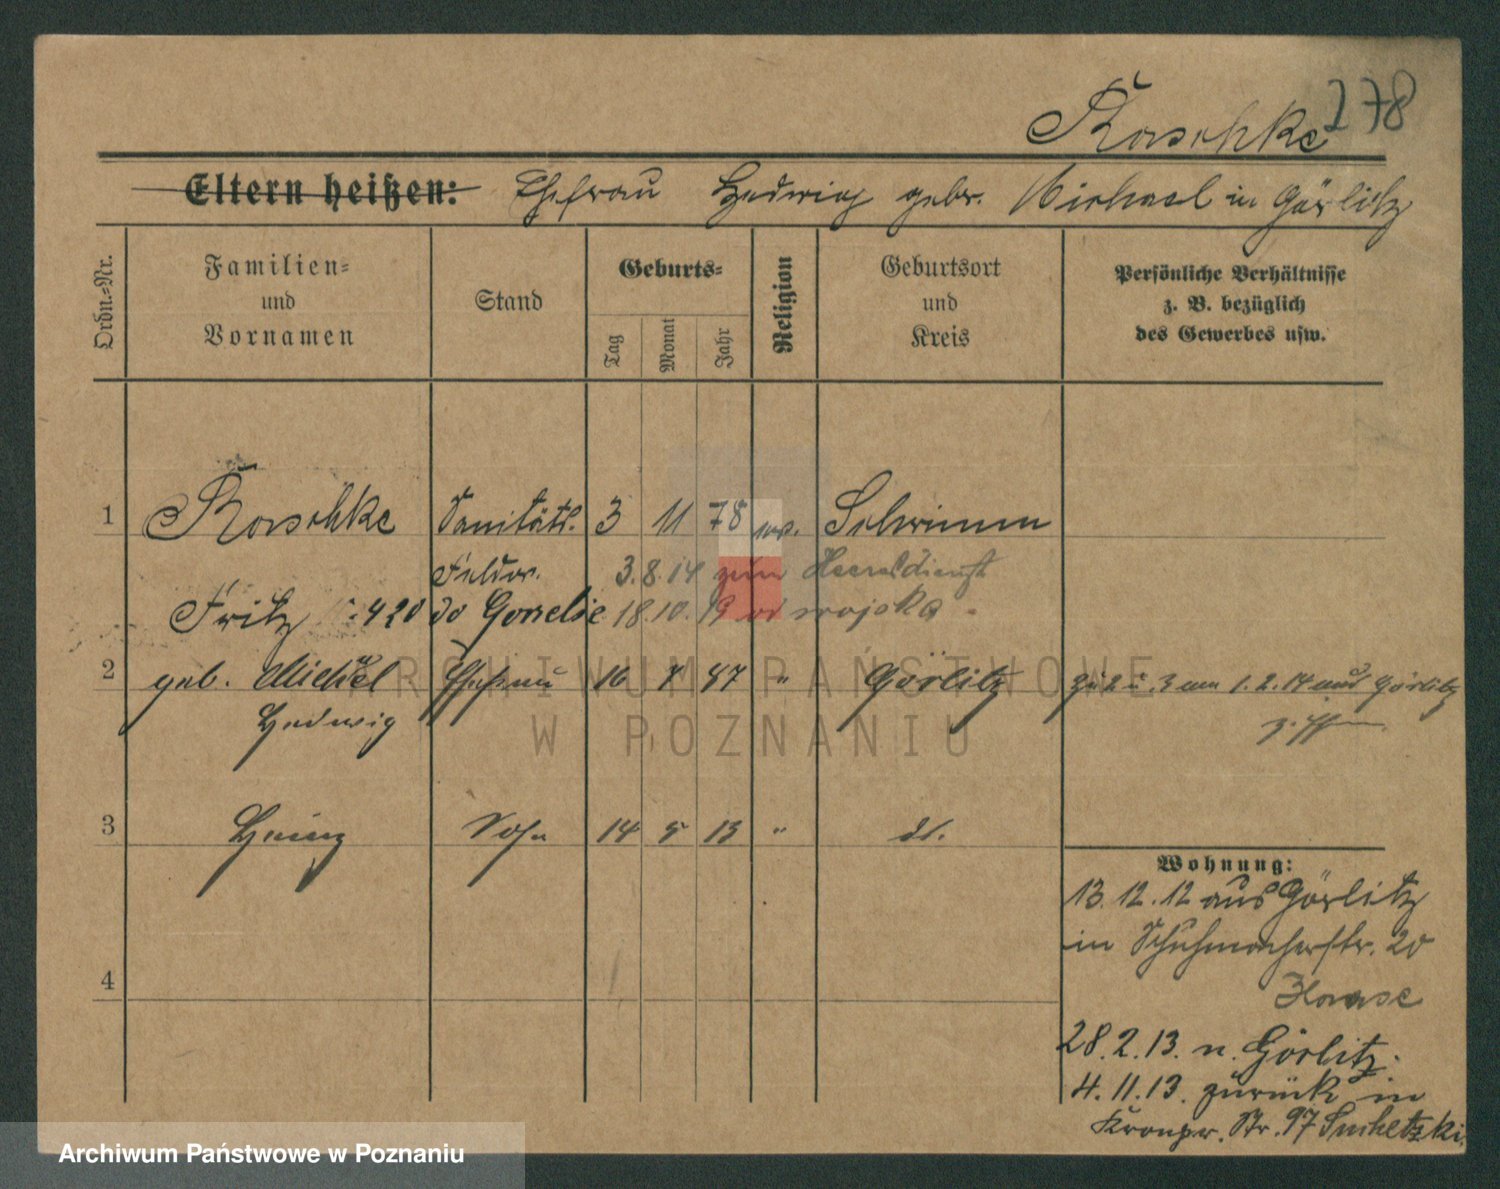 278
Raschke
Eltern heißen: Ehefrau Hedwig gebr. Michael in Görlitz
Ordn.-Nr.
Familien-
und
Vornamen
Stand
Geburts-
Tag
Monat
Jahr
Religion
Geburtsort
und
Kreis
Persönliche Verhältnisse
z. B. bezüglich
des Gewerbes usw.
1 Raschke Sanitäts. 3 11 78 ev.
3.8.14 zum Heeresdienst
Fritz 18.10.19 od wojska
2 geb. Michael Ehefrau 16 7 87 " Görlitz zu 2 u. 3 am 1.2.14 aus Görlitz
Hedwig
3 Heinz Sohn 14 5 13 " do.
4
Wohnung:
13.12.12 aus Görlitz
in Schuhmacherstr. 20
Haase
28.2.13. n. Görlitz.
4.11.13. zurück in
Kronpr. Str. 97
ARCHIWUM PAŃSTWOWE
W POZNANIU
Archiwum Państwowe w Poznaniu